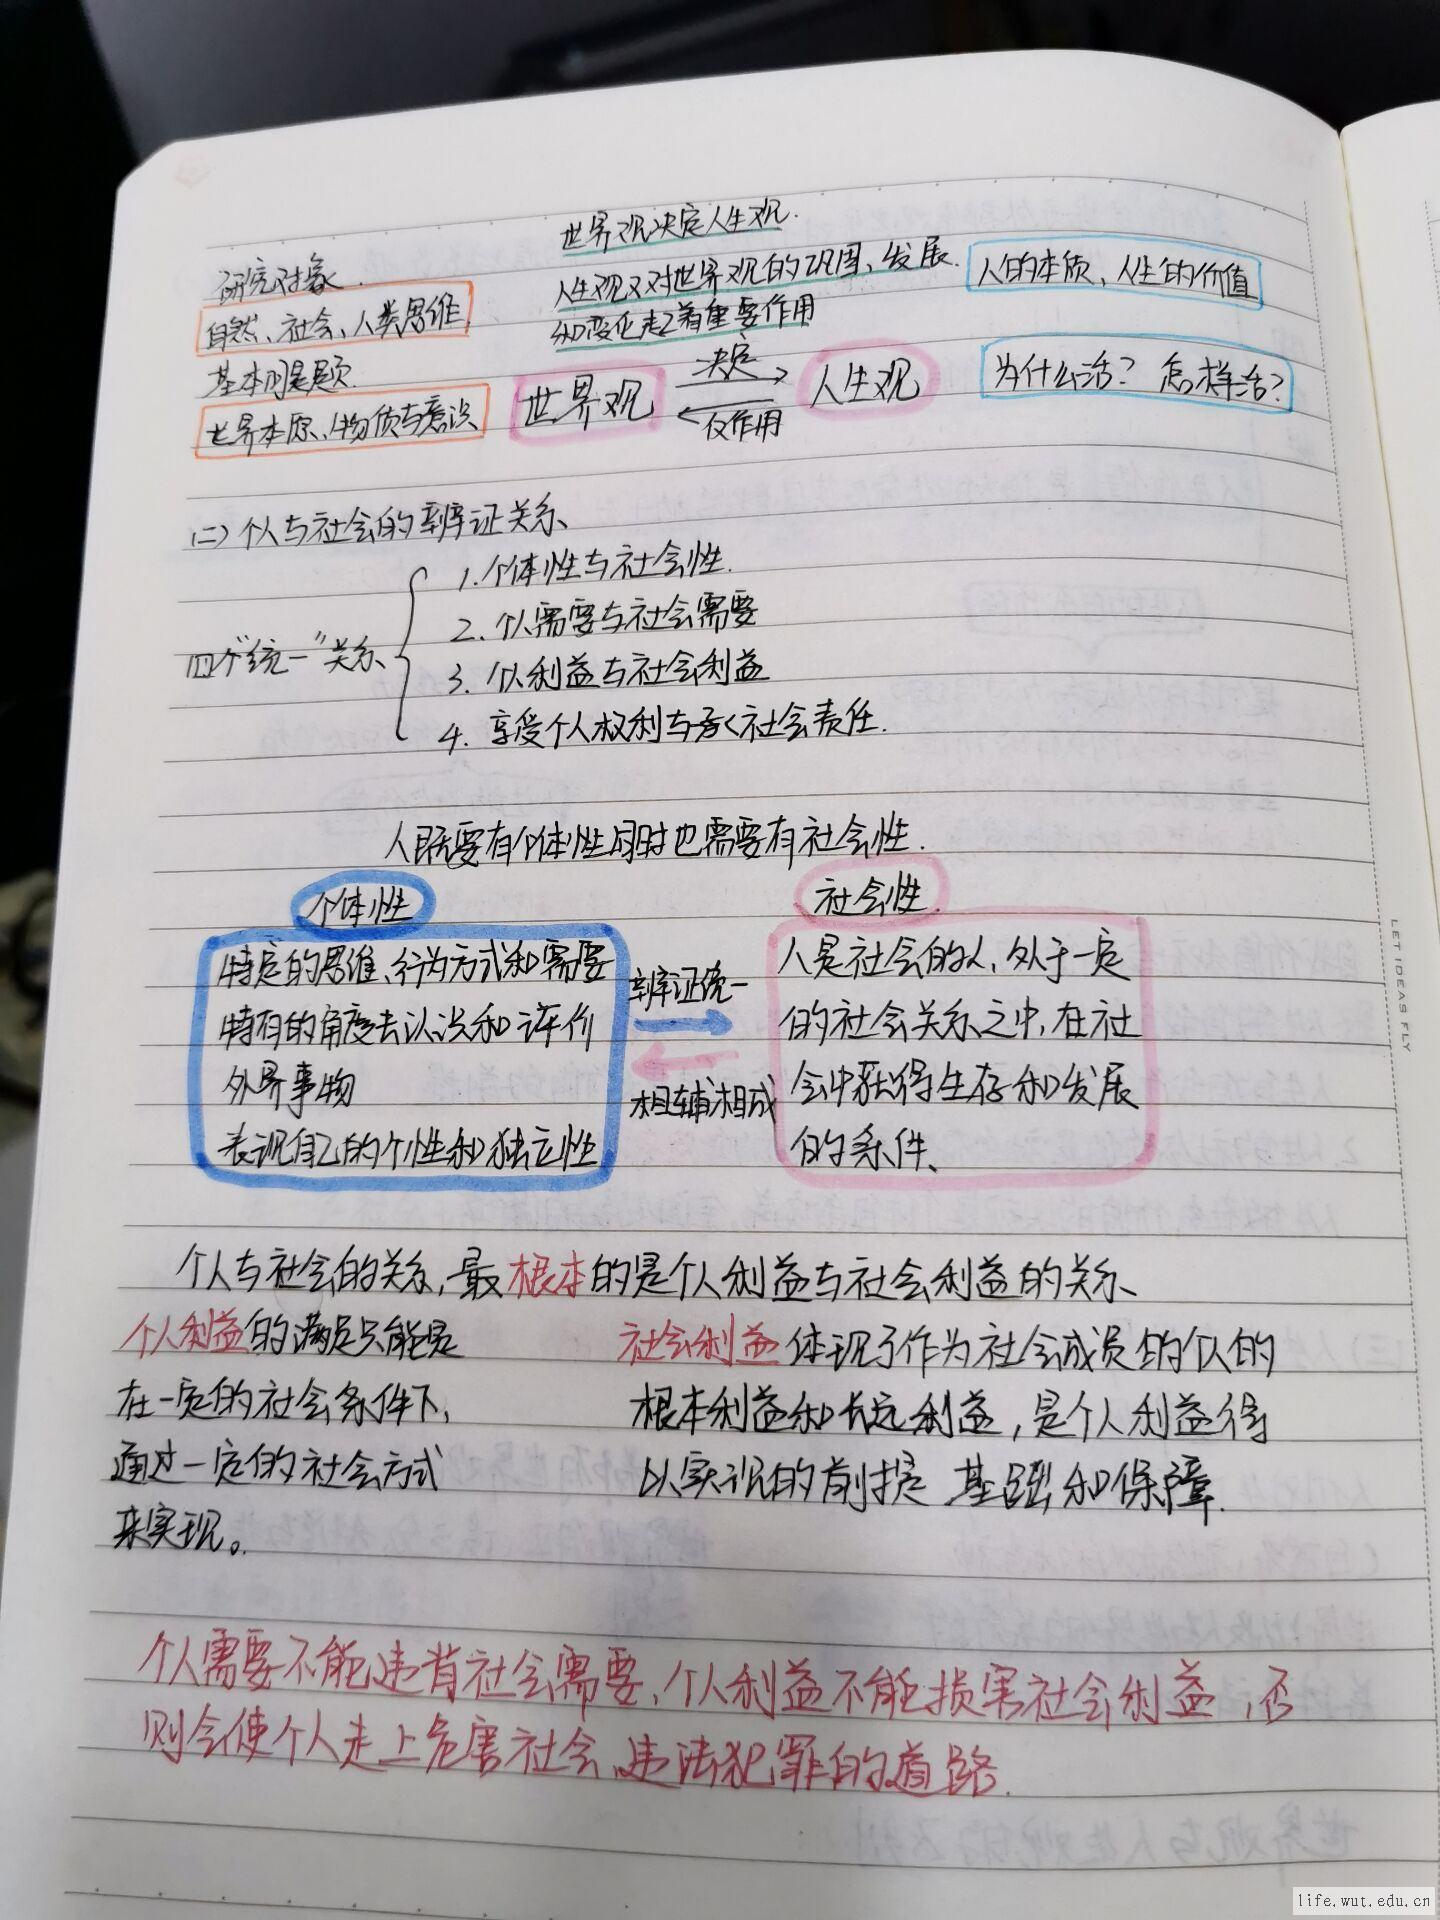 世界观决定人生观.
研究对象.
人生观又对世界观的巩固、发展.
和变化起着重要作用
人的本质、人生的价值
自然、社会、人类思维
基本问题
世界本原、物质与意识
世界观
决定
反作用
人生观
为什么活？怎样活？
(二)个人与社会的辩证关系、
四个“统一”关系
1.个体性与社会性.
2.个人需要与社会需要
3.个人利益与社会利益
4.享受个人权利与承担社会责任.
人既要有个体性同时也需要有社会性.
个体性
社会性.
特定的思维、行为方式和需要
特有的角度去认识和评价
外界事物
表现自己的个性和独立性
辩证统一
相辅相成
人是社会的人,处于一定
的社会关系之中,在社
会中获得生存和发展
的条件、
个人与社会的关系,最根本的是个人利益与社会利益的关系、
个人利益的满足只能是
在一定的社会条件下,
通过一定的社会方式
来实现。
社会利益体现了作为社会成员的个人的
根本利益和长远利益,是个人利益得
以实现的前提 基础和保障.
个人需要不能违背社会需要、个人利益不能损害社会利益,否
则会使个人走上危害社会、违法犯罪的道路.
LET IDEAS FLY
life.wut.edu.cn